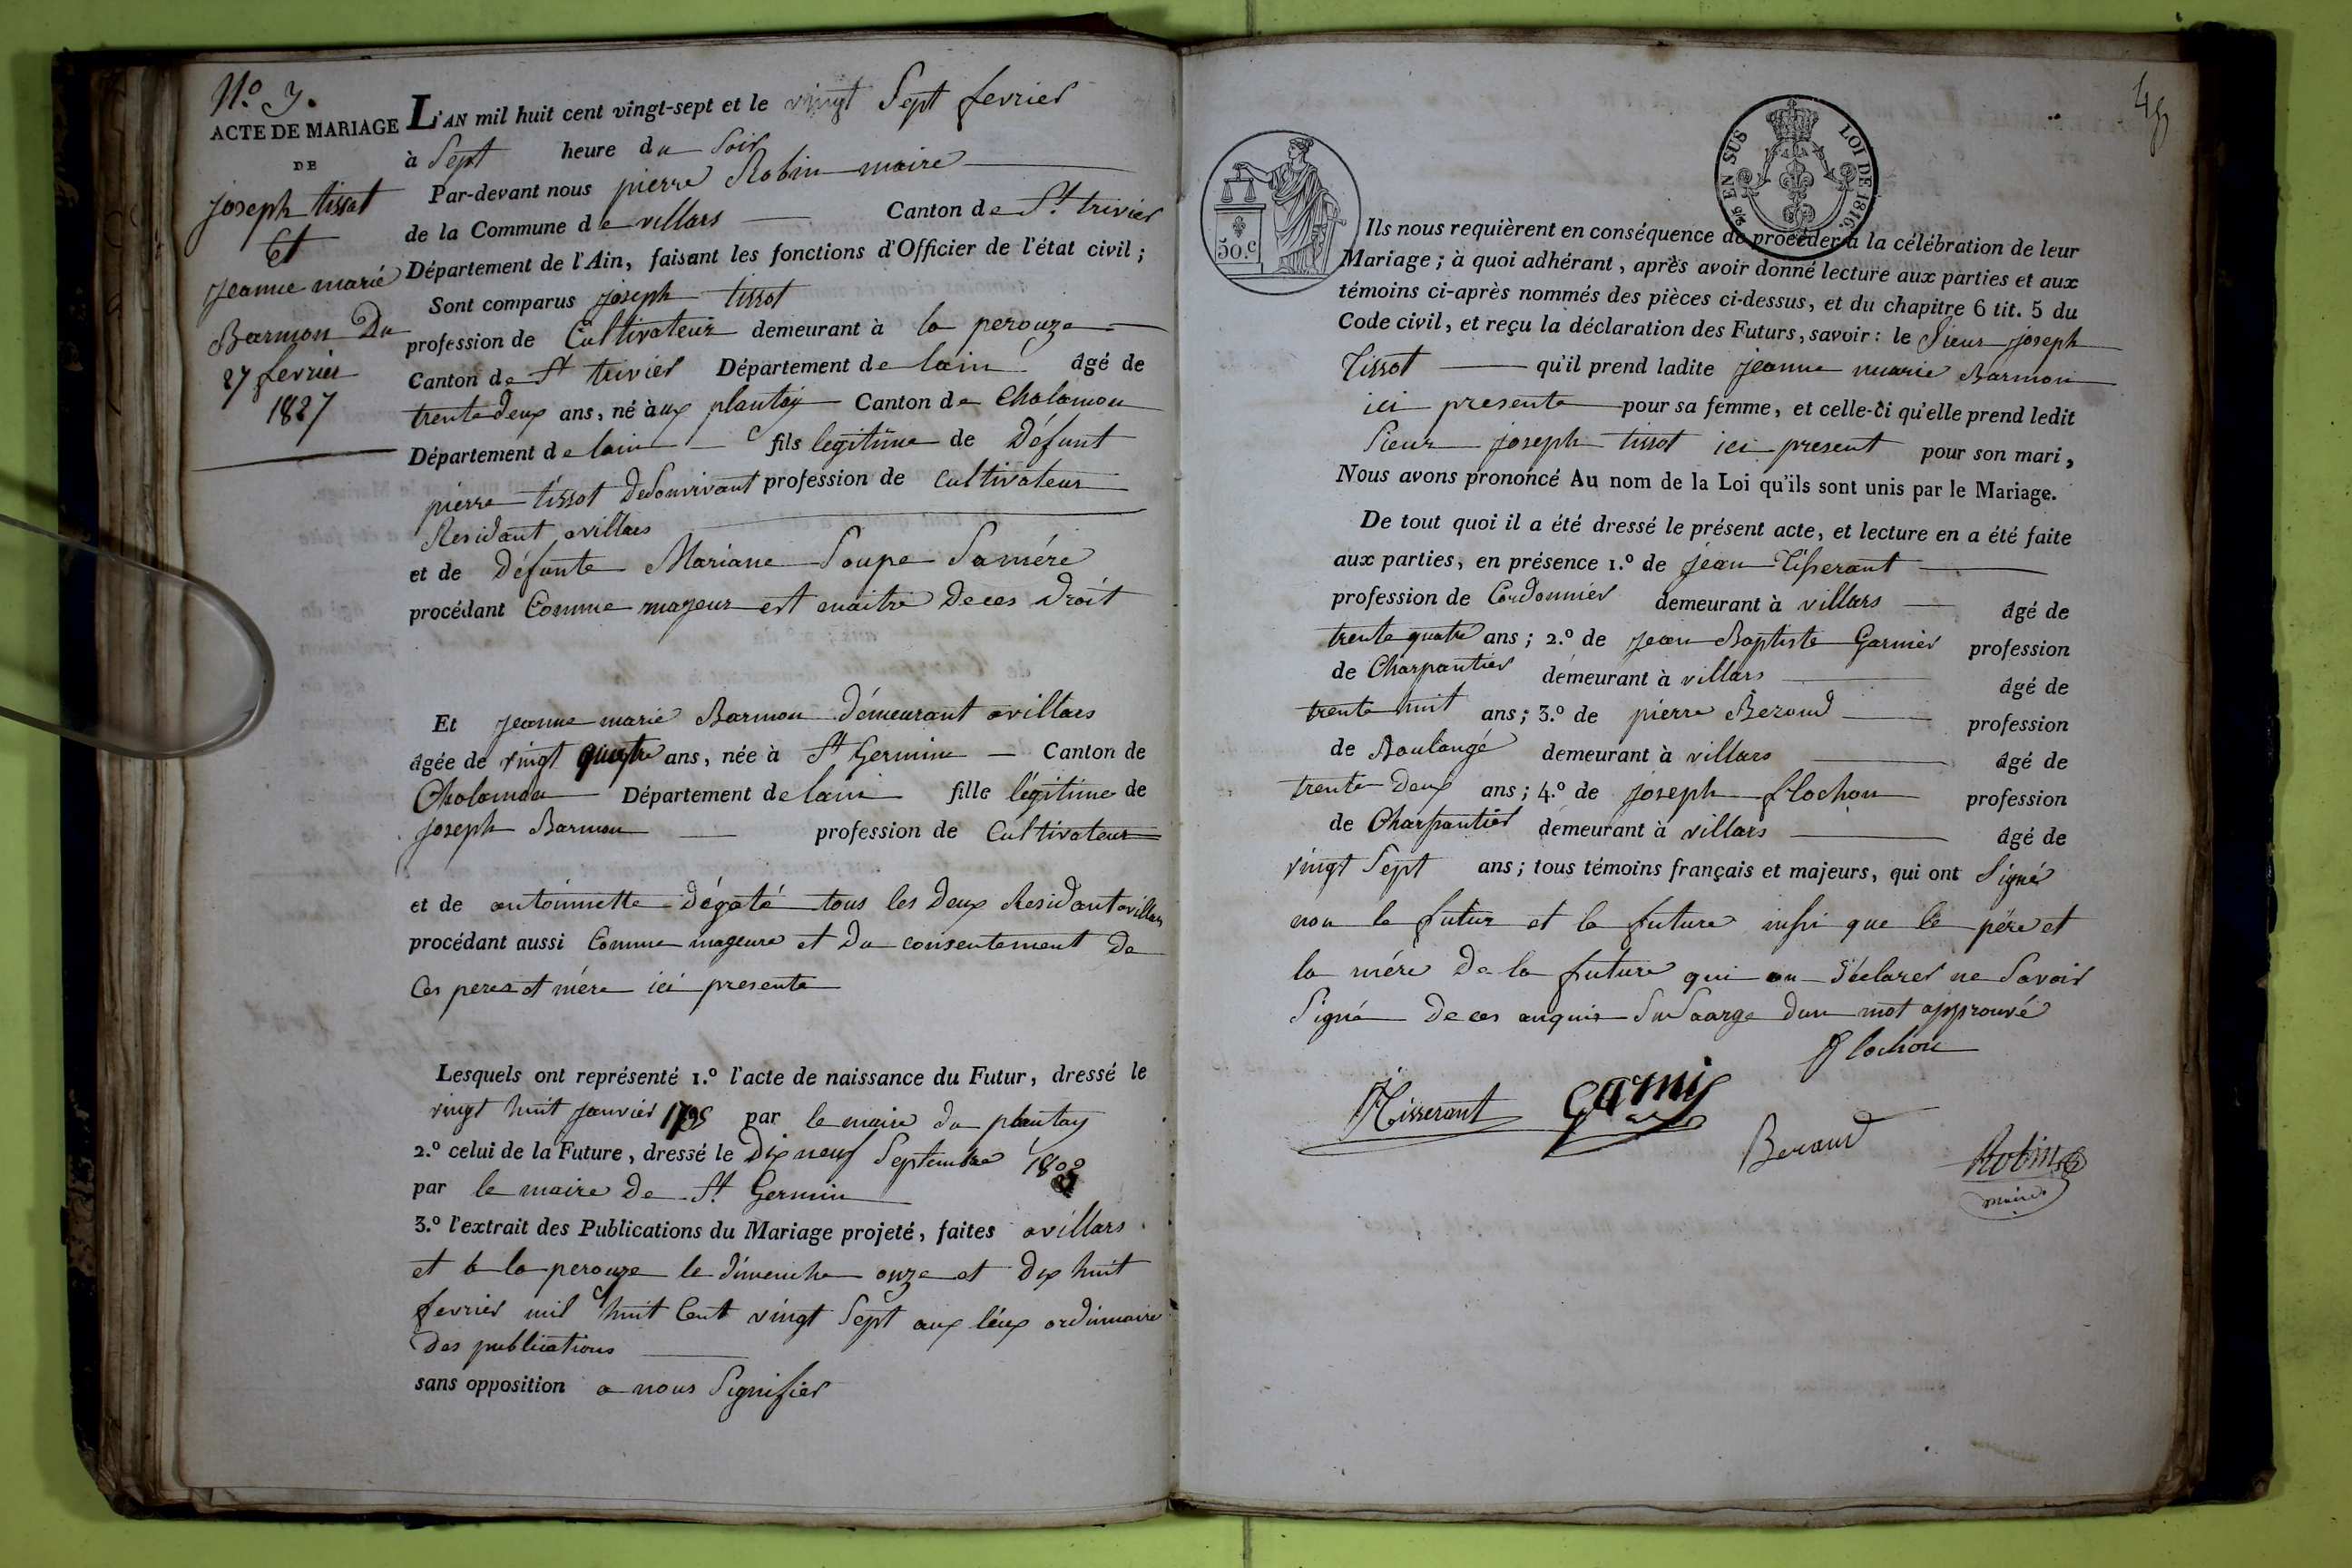 N.o 7.
ACTE DE MARIAGE
DE
joseph tissot
Et
jeanne marié
Barmon Du
27 fevrier
1827
L'AN mil huit cent vingt-sept et le vingt Sept fevrier
à Sept heure du Soir
Par-devant nous pierre Robin maire
de la Commune de villars Canton de St. trivier
Département de l'Ain, faisant les fonctions d'Officier de l'état civil ;
Sont comparus joseph tissot
profession de Cultivateur demeurant à la perouze
Canton de St trivier Département de lain âgé de
trente deux ans, né à aux plantay Canton de Chalamon
Département de lain fils legitime de Défunt
pierre tissot desonvivant profession de cultivateur
Residant avillars
et de Défunte Mariane Soupe Samére
procédant Comme mageur est maitre Deces Droit
Et jeanne marie Barmon démeurant avillars
âgée de vingt quatre ans, née à St Germin Canton de
Chalamon Département de lain fille légitime de
joseph Barmon profession de Cultivateur
et de antoinnette Dégaté tous les Deux Residant avillars
procédant aussi Comme mageure et Du consentement De
Ces peres et mére ici presente
Lesquels ont représenté 1.º l'acte de naissance du Futur, dressé le
vingt huit janvier 1795 par le maire du plantay
2.º celui de la Future, dressé le Dix neuf Septembre
par le maire De St. Germin
3.º l'extrait des Publications du Mariage projeté, faites avillars
et à la perouze le dimenche onze et Dix huit
fevrier mil huit Cent vingt Sept aux lieux ordinnaire
Des publications
sans opposition a nous Signifier
50.c
EN SUS
LOI DE 1816.
Ils nous requièrent en conséquence de procéder à la célébration de leur
Mariage ; à quoi adhérant, après avoir donné lecture aux parties et aux
témoins ci-après nommés des pièces ci-dessus, et du chapitre 6 tit. 5 du
Code civil, et reçu la déclaration des Futurs, savoir : le Sieur joseph
Tissot qu'il prend ladite jeanne marie Barmon
ici presente pour sa femme, et celle-ci qu'elle prend ledit
Sieur joseph tissot ici present pour son mari,
Nous avons prononcé Au nom de la Loi qu'ils sont unis par le Mariage.
De tout quoi il a été dressé le présent acte, et lecture en a été faite
aux parties, en présence 1.º de jean Tisserant
profession de Cordonnier demeurant à villars âgé de
trente quatre ans ; 2.º de jean Baptiste Garnier profession
de Charpantier demeurant à villars âgé de
trente huit ans ; 3.º de pierre Beroud profession
de Boulangé demeurant à villars âgé de
trente Deux ans ; 4.º de joseph flochon profession
de Charpantier demeurant à villars âgé de
vingt Sept ans ; tous témoins français et majeurs, qui ont Signé
non le futur et la future insi que le pére et
la mére De la future qui on Déclarer ne Savoir
Signé De ces enquis Sur Saarge dun mot approuvé
flochon
Tisserant Garnié
Beraud
Robin
maire